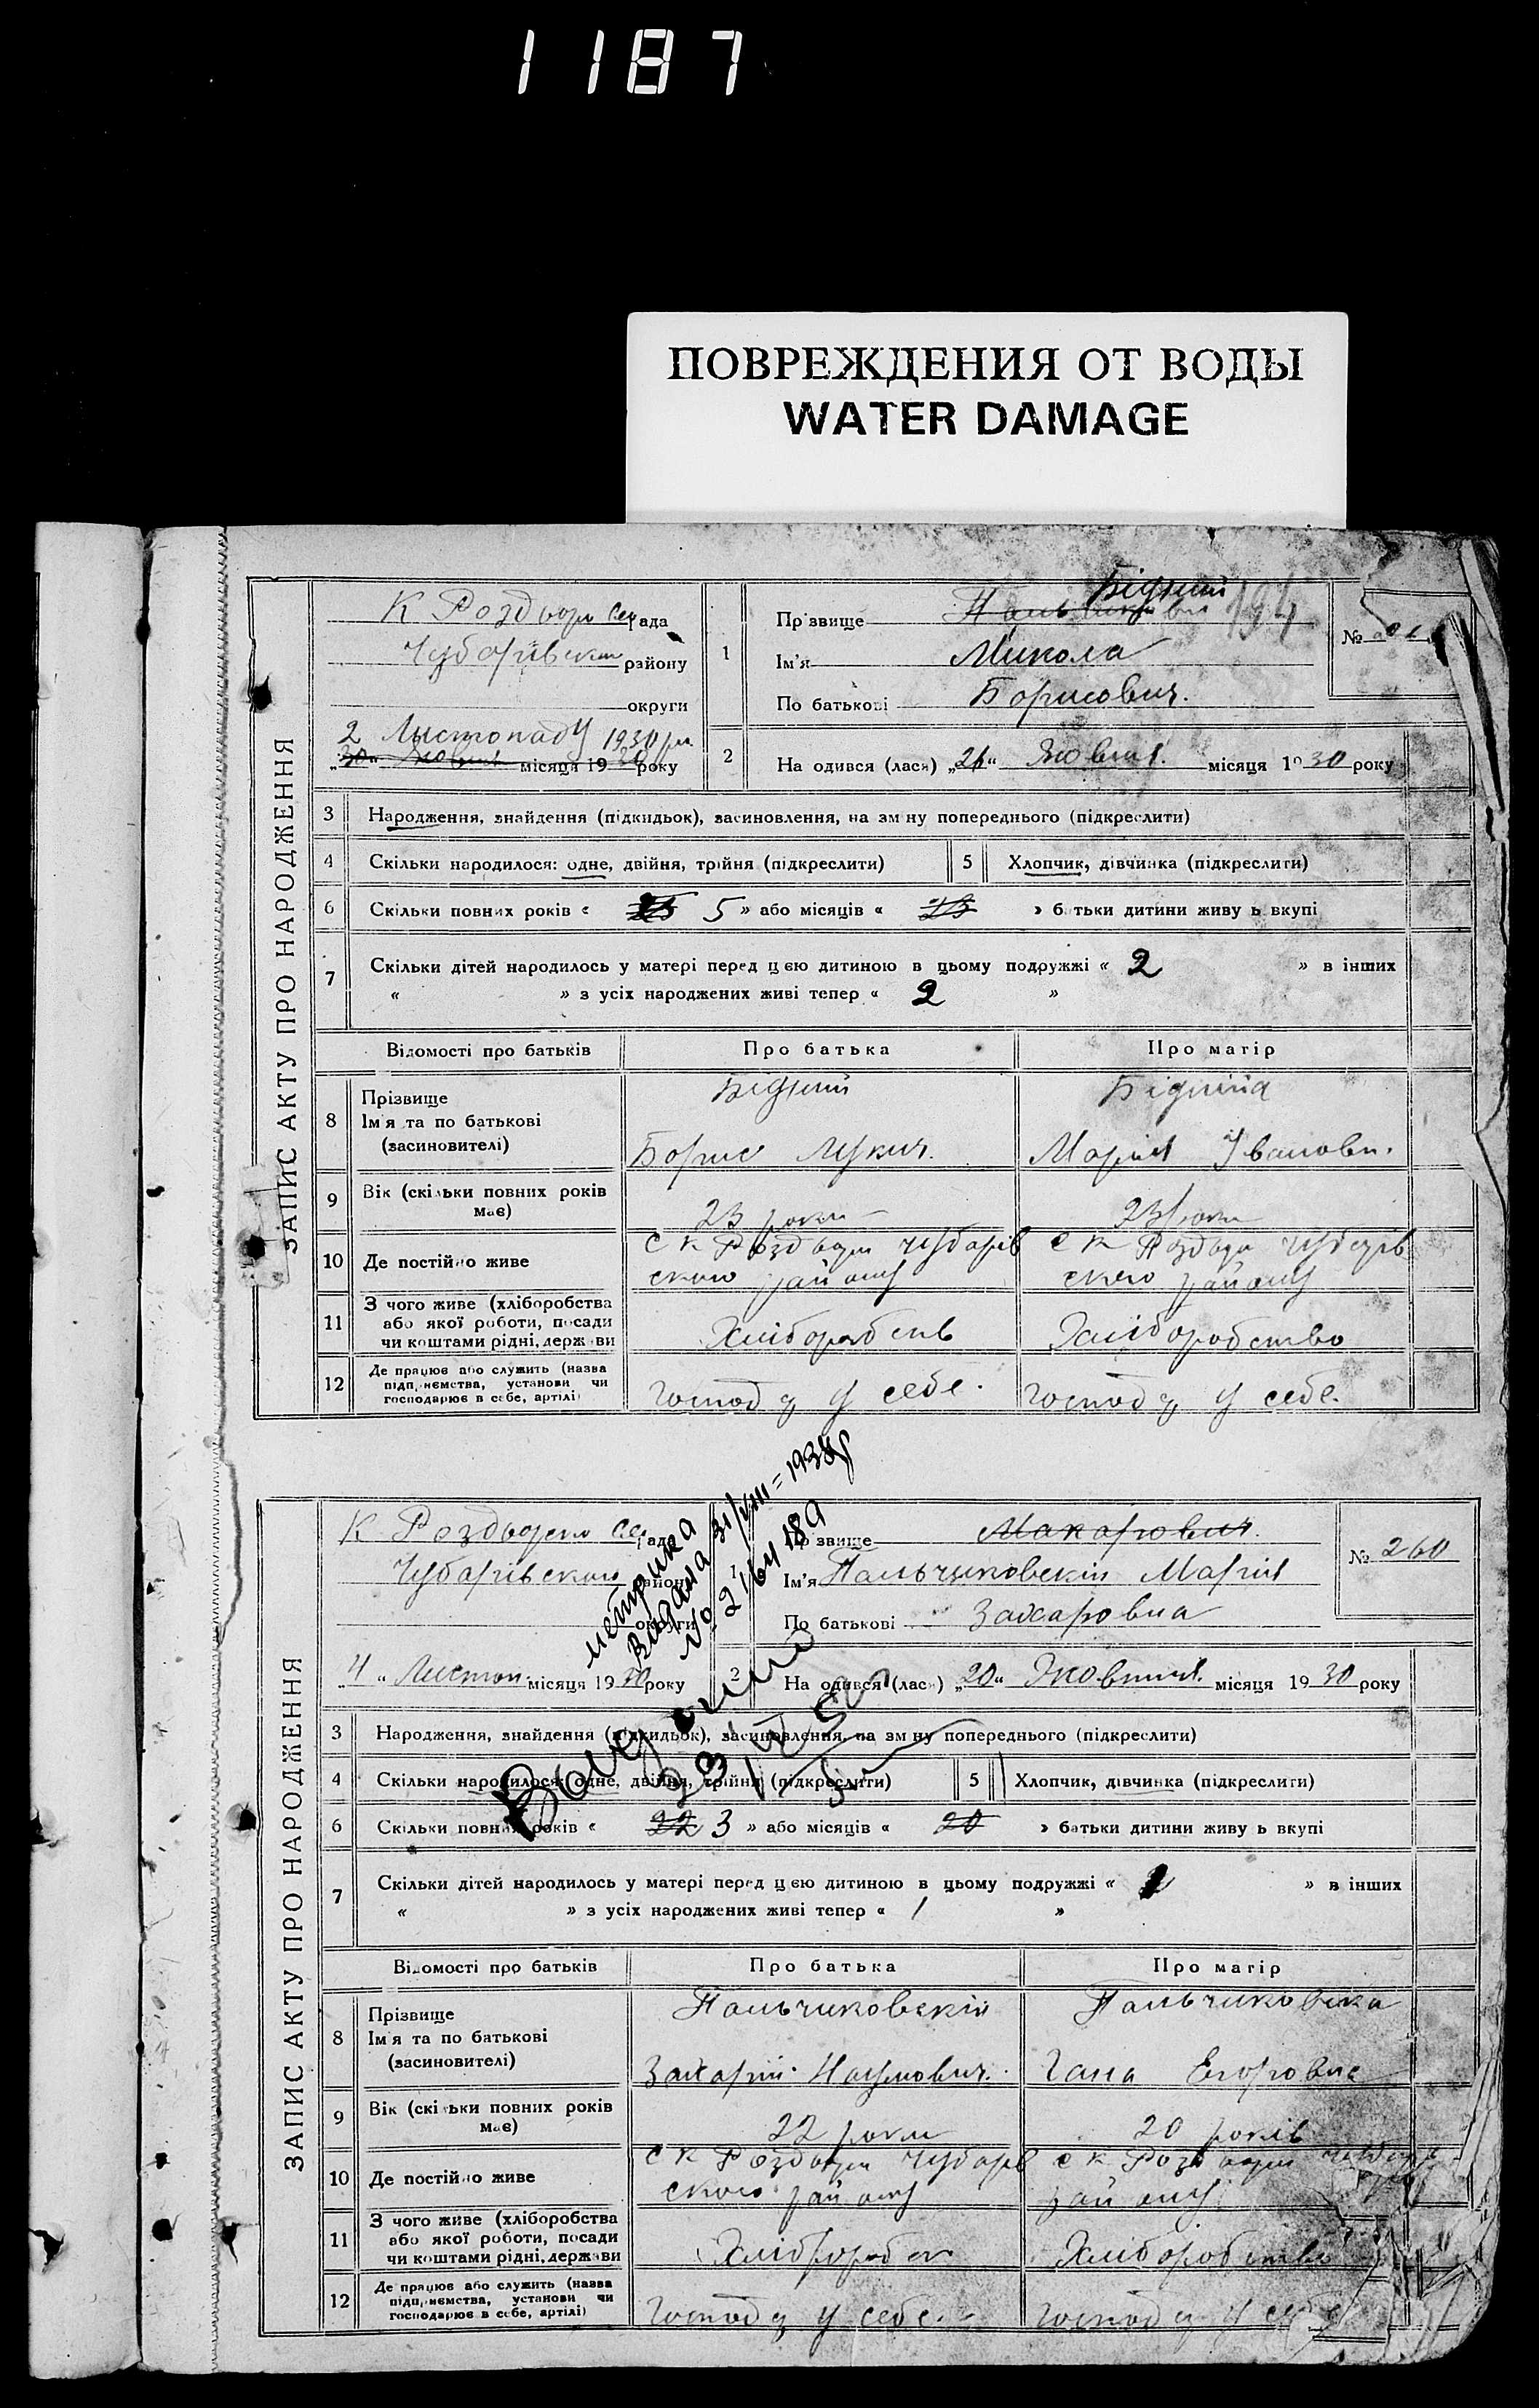 1187
ПОВРЕЖДЕНИЯ ОТ ВОДЫ
WATER DAMAGE
ЗАПИС АКТУ ПРО НАРОДЖЕННЯ
К Роздори Сел рада
Чубарівським району
округи
2 Листопаду 1930 р.
„30“ Жовтня місяця 1930 року
1
Прізвище Бідний
Ім'я Микола
По батькові Борисович.
194
№
2
На одився (лася) „26“ Жовтня. місяця 1930 року
3 Народження, знайдення (підкидьок), засиновлення, на зм ну попереднього (підкреслити)
4 Скільки народилося: одне, двійня, трійня (підкреслити) 5 Хлопчик, дівчинка (підкреслити)
6 Скільки повних років « 23 5 » або місяців « 23 » батьки дитини живу ь вкупі
7 Скільки дітей народилось у матері перед цією дитиною в цьому подружжі « 2 » в інших
« » з усіх народжених живі тепер « 2 »
Відомості про батьків Про батька Про матір
8 Прізвище Бідний Бідніна
Ім'я та по батькові
(засиновителі) Борис Лукич. Марія Івановн.
9 Вік (скільки повних років має) 23 роки 23 роки
10 Де постійно живе С К Роздори Чубарів С К Роздори Чубарів
ского району ского району
11 З чого живе (хліборобства
або якої роботи, посади
чи коштами рідні, держави Хліборобств Хліборобство
12 Де працює або служить (назва
підприємства, установи чи
господарює в себе, артілі) Господ у себе. Господ у себе.
ЗАПИС АКТУ ПРО НАРОДЖЕННЯ
метрика
Видана 31/VIII=1938р
№ 2164189
К Роздорская Сел рада
Чубарівського району
округи
„4“ Листоп. місяця 1930 року
1
Прізвище Макарович.
Ім'я Пальчиковский Марія
По батькові Захаровна
№ 260
2
На одився (лася) „20“ Жовтня. місяця 1930 року
3 Народження, знайдення (підкидьок), засиновлення, на зм ну попереднього (підкреслити)
4 Скільки народилося: одне, двійня, трійня (підкреслити) 5 Хлопчик, дівчинка (підкреслити)
6 Скільки повних років « 22 3 » або місяців « 20 » батьки дитини живу ь вкупі
7 Скільки дітей народилось у матері перед цією дитиною в цьому подружжі « » в інших
« » з усіх народжених живі тепер « 1 »
Відомості про батьків Про батька Про матір
8 Прізвище Пальчиковский Пальчиковска
Ім'я та по батькові
(засиновителі) Захарій Наумович. Гана Егоровна
9 Вік (скільки повних років має) 22 роки 20 років
10 Де постійно живе С К Роздори Чубарів С К Роздори
ского району району
11 З чого живе (хліборобства
або якої роботи, посади
чи коштами рідні, держави Хлібороб Хліборобство
12 Де працює або служить (назва
підприємства, установи чи
господарює в себе, артілі) Господ у себе. Господ у себе